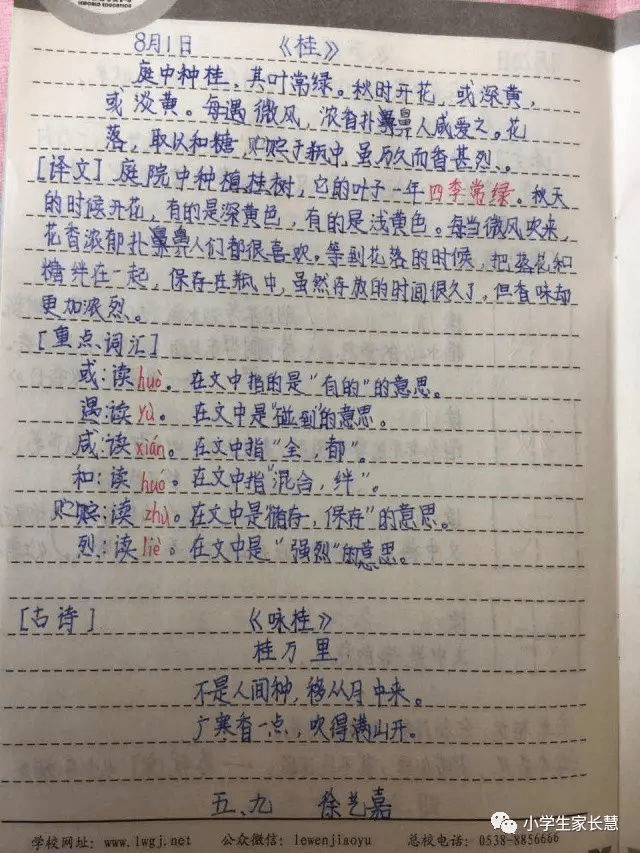 LEWORLD EDUCATION
8月1日 《桂》
庭中种桂,其叶常绿。秋时开花,或深黄,
或淡黄。每遇微风,浓香扑鼻人咸爱之。花
落,取以和糖,贮于瓶中,虽历久而香甚烈。
[译文]庭院中种植桂树,它的叶子一年四季常绿。秋天
的时候开花,有的是深黄色,有的是浅黄色。每当微风吹来,
花香浓郁扑鼻人们都很喜欢。等到花落的时候,把落花和
糖绊在一起,保存在瓶中,虽然存放的时间很久了,但香味却
更加浓烈。
[重点词汇]
或:读huò。在文中指的是"有的"的意思。
遇:读yù。在文中是"碰到"的意思。
咸:读xián。在文中指"全,都"。
和:读huó。在文中指"混合,绊"。
贮:读zhù。在文中是"储存,保存"的意思。
烈:读liè。在文中是"强烈"的意思。
[古诗] 《咏桂》
桂万里
不是人间种,移从月中来。
广寒香一点,吹得满山开。
五、九 徐艺嘉
学校网址:www.lwgj.net 公众微信:lewenjiaoyu 总校电话:0538-8856666
小学生家长慧